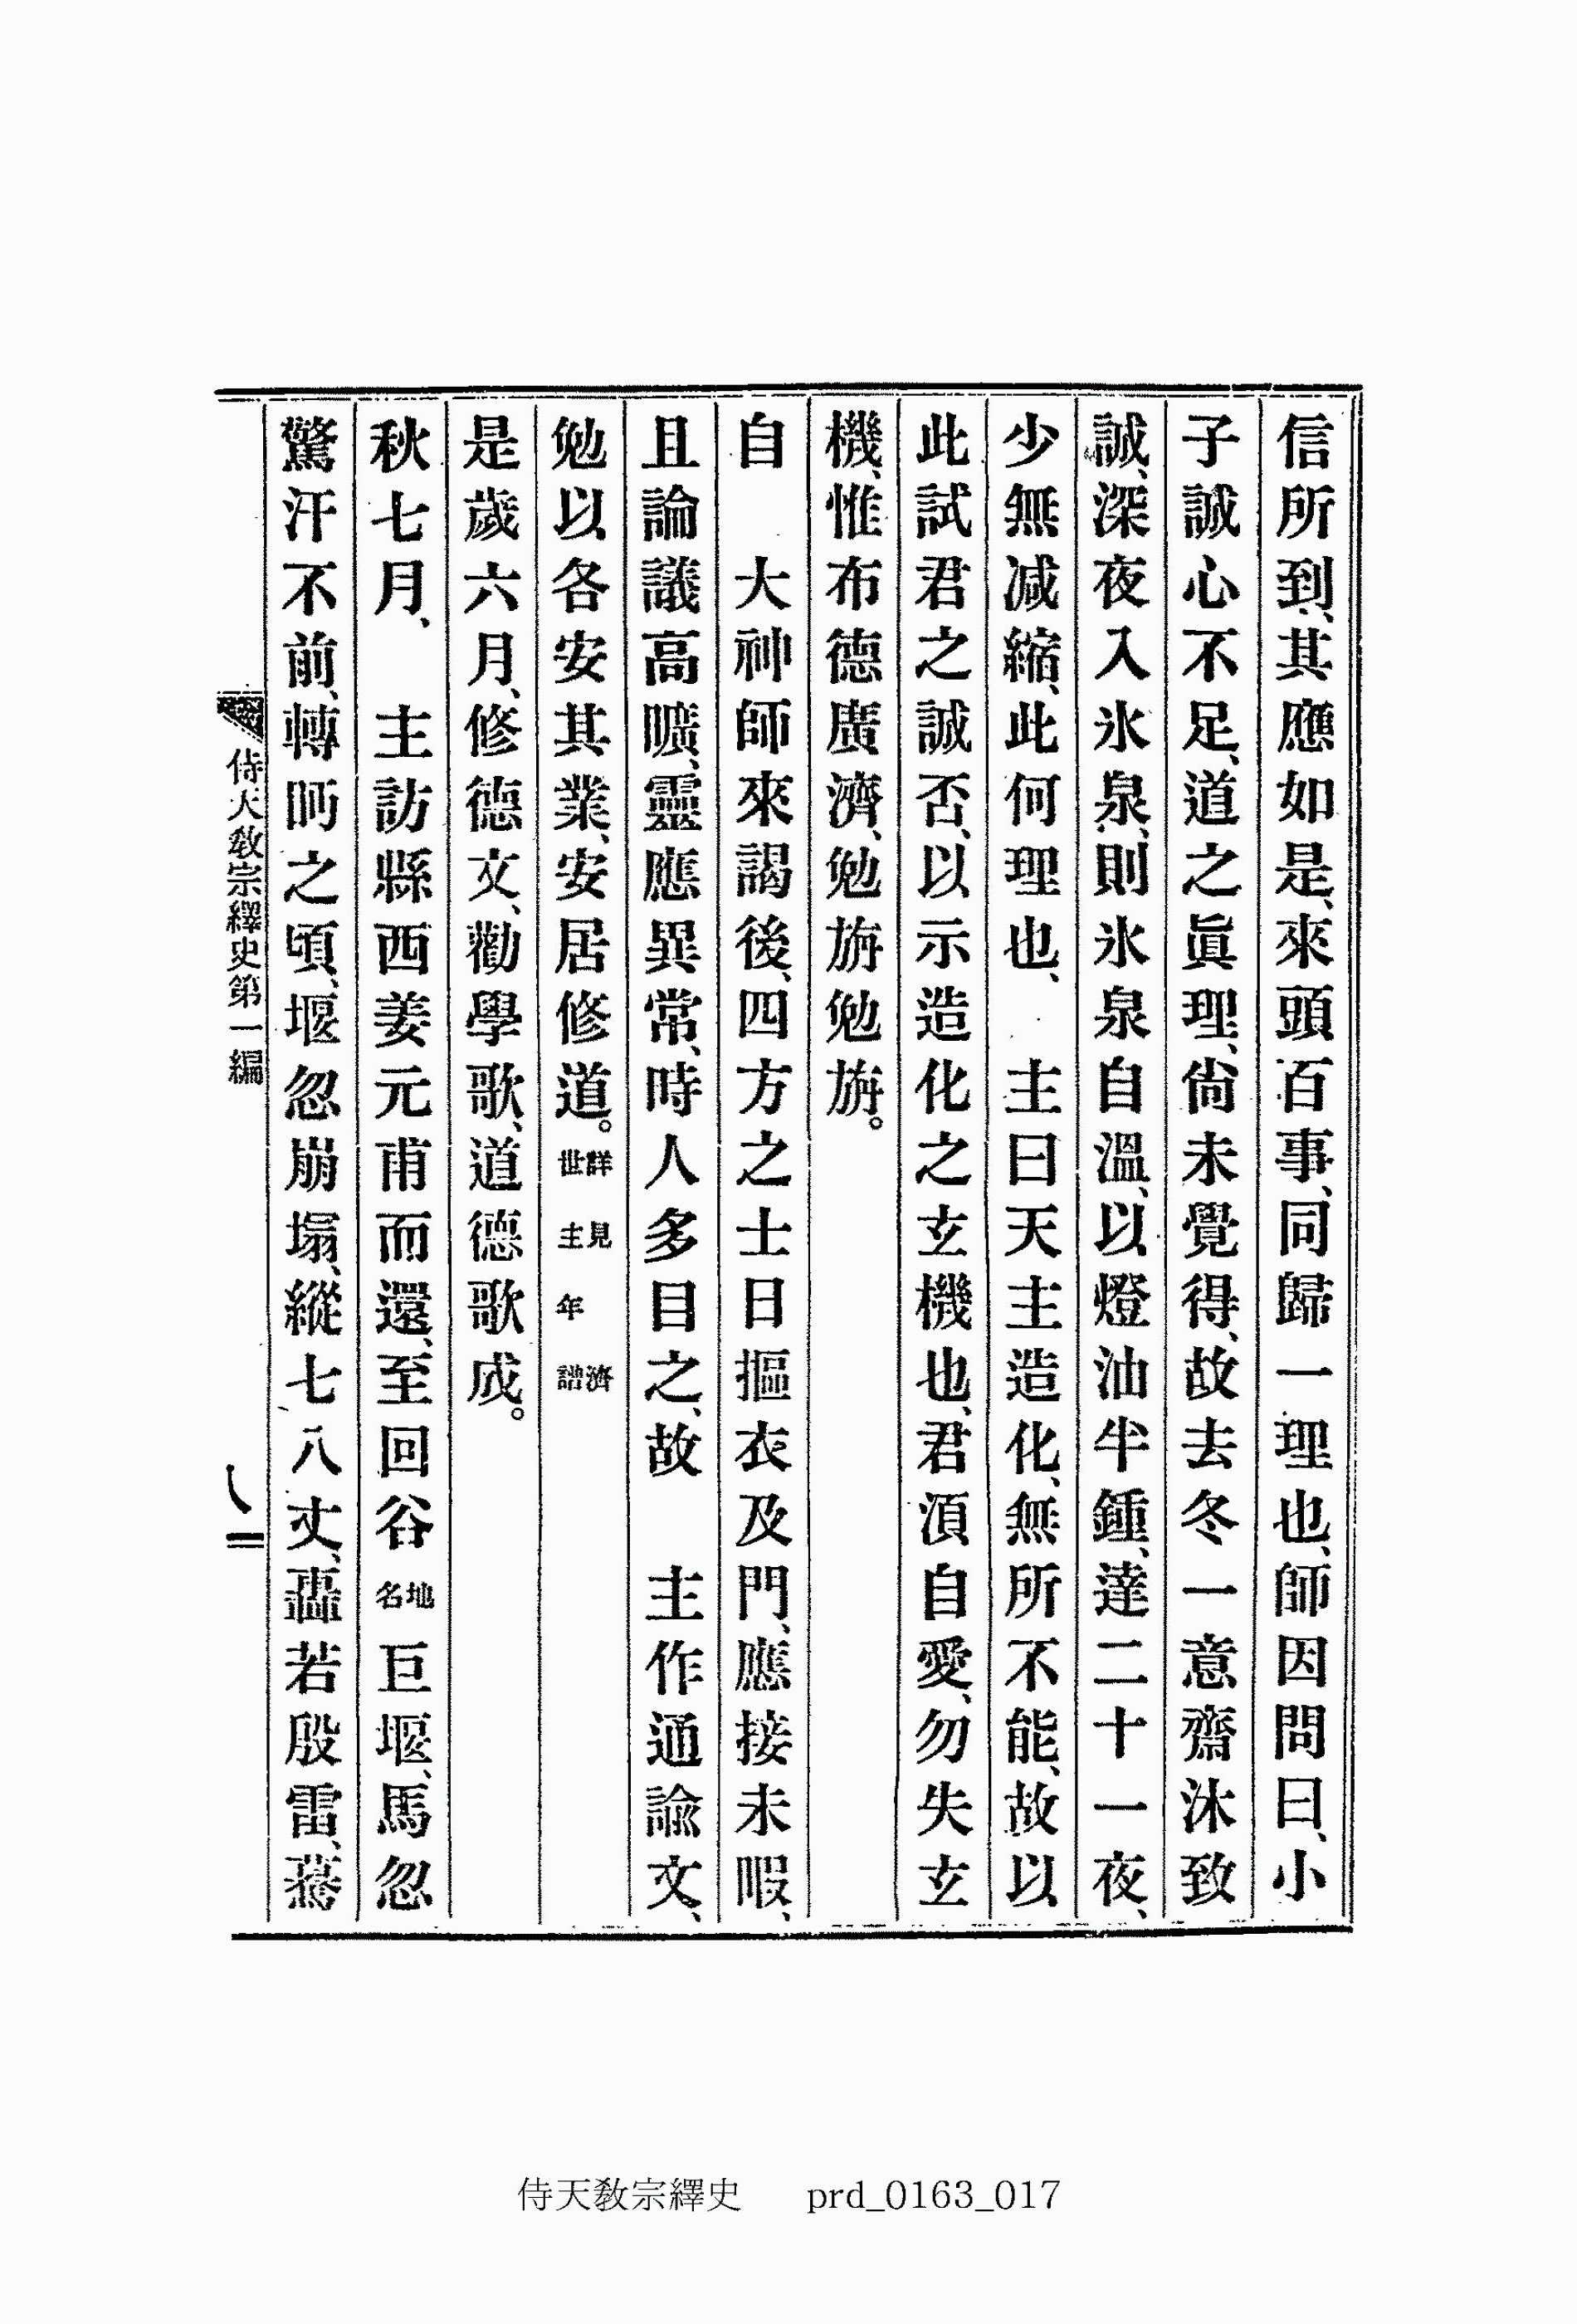 信所到、其應如是、來頭百事、同歸一理也、師因問曰、小
子誠心不足、道之眞理、尙未覺得、故去冬一意齋沐致
誠、深夜入氷泉、則氷泉自溫、以燈油半鍾、達二十一夜、
少無减縮、此何理也、　主曰天主造化、無所不能、故以
此試君之誠否、以示造化之玄機也、君湏自愛、勿失玄
機、惟布德廣濟、勉旃勉旃。
自　大神師來謁後、四方之士日摳衣及門、應接未暇、
且論議高曠、靈應異常、時人多目之、故　主作通諭文、
勉以各安其業、安居修道。詳見濟世主年譜
是歲六月、修德文、勸學歌、道德歌成。
秋七月、　主訪縣西姜元甫而還、至回谷地名巨堰、馬忽
驚汗不前、轉眄之頃、堰忽崩塌、縱七八丈、轟若殷雷、驀
侍天敎宗繹史第一編
八
侍天敎宗繹史 prd_0163_017